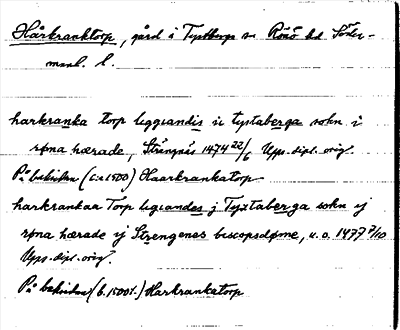 Hårkranktorp, gård i Tystberga sn Rönö hd Söder-
manl. l.
harkranka torp liggiandis i tystaberga sokn i
røna hærade, Strängnäs 1474 22/6 Upps. dipl. orig.
På baksidan (c:a 1500) Haarkrankatorp
harkrankaa Torp ligiandes j Tyxtaberga sokn ij
røna hærade ij Strengenes biscopsdøme, u.o. 1477 7/10
Upps. dipl. orig.
På baksidan (b. 1500t.) Harkrankatorp